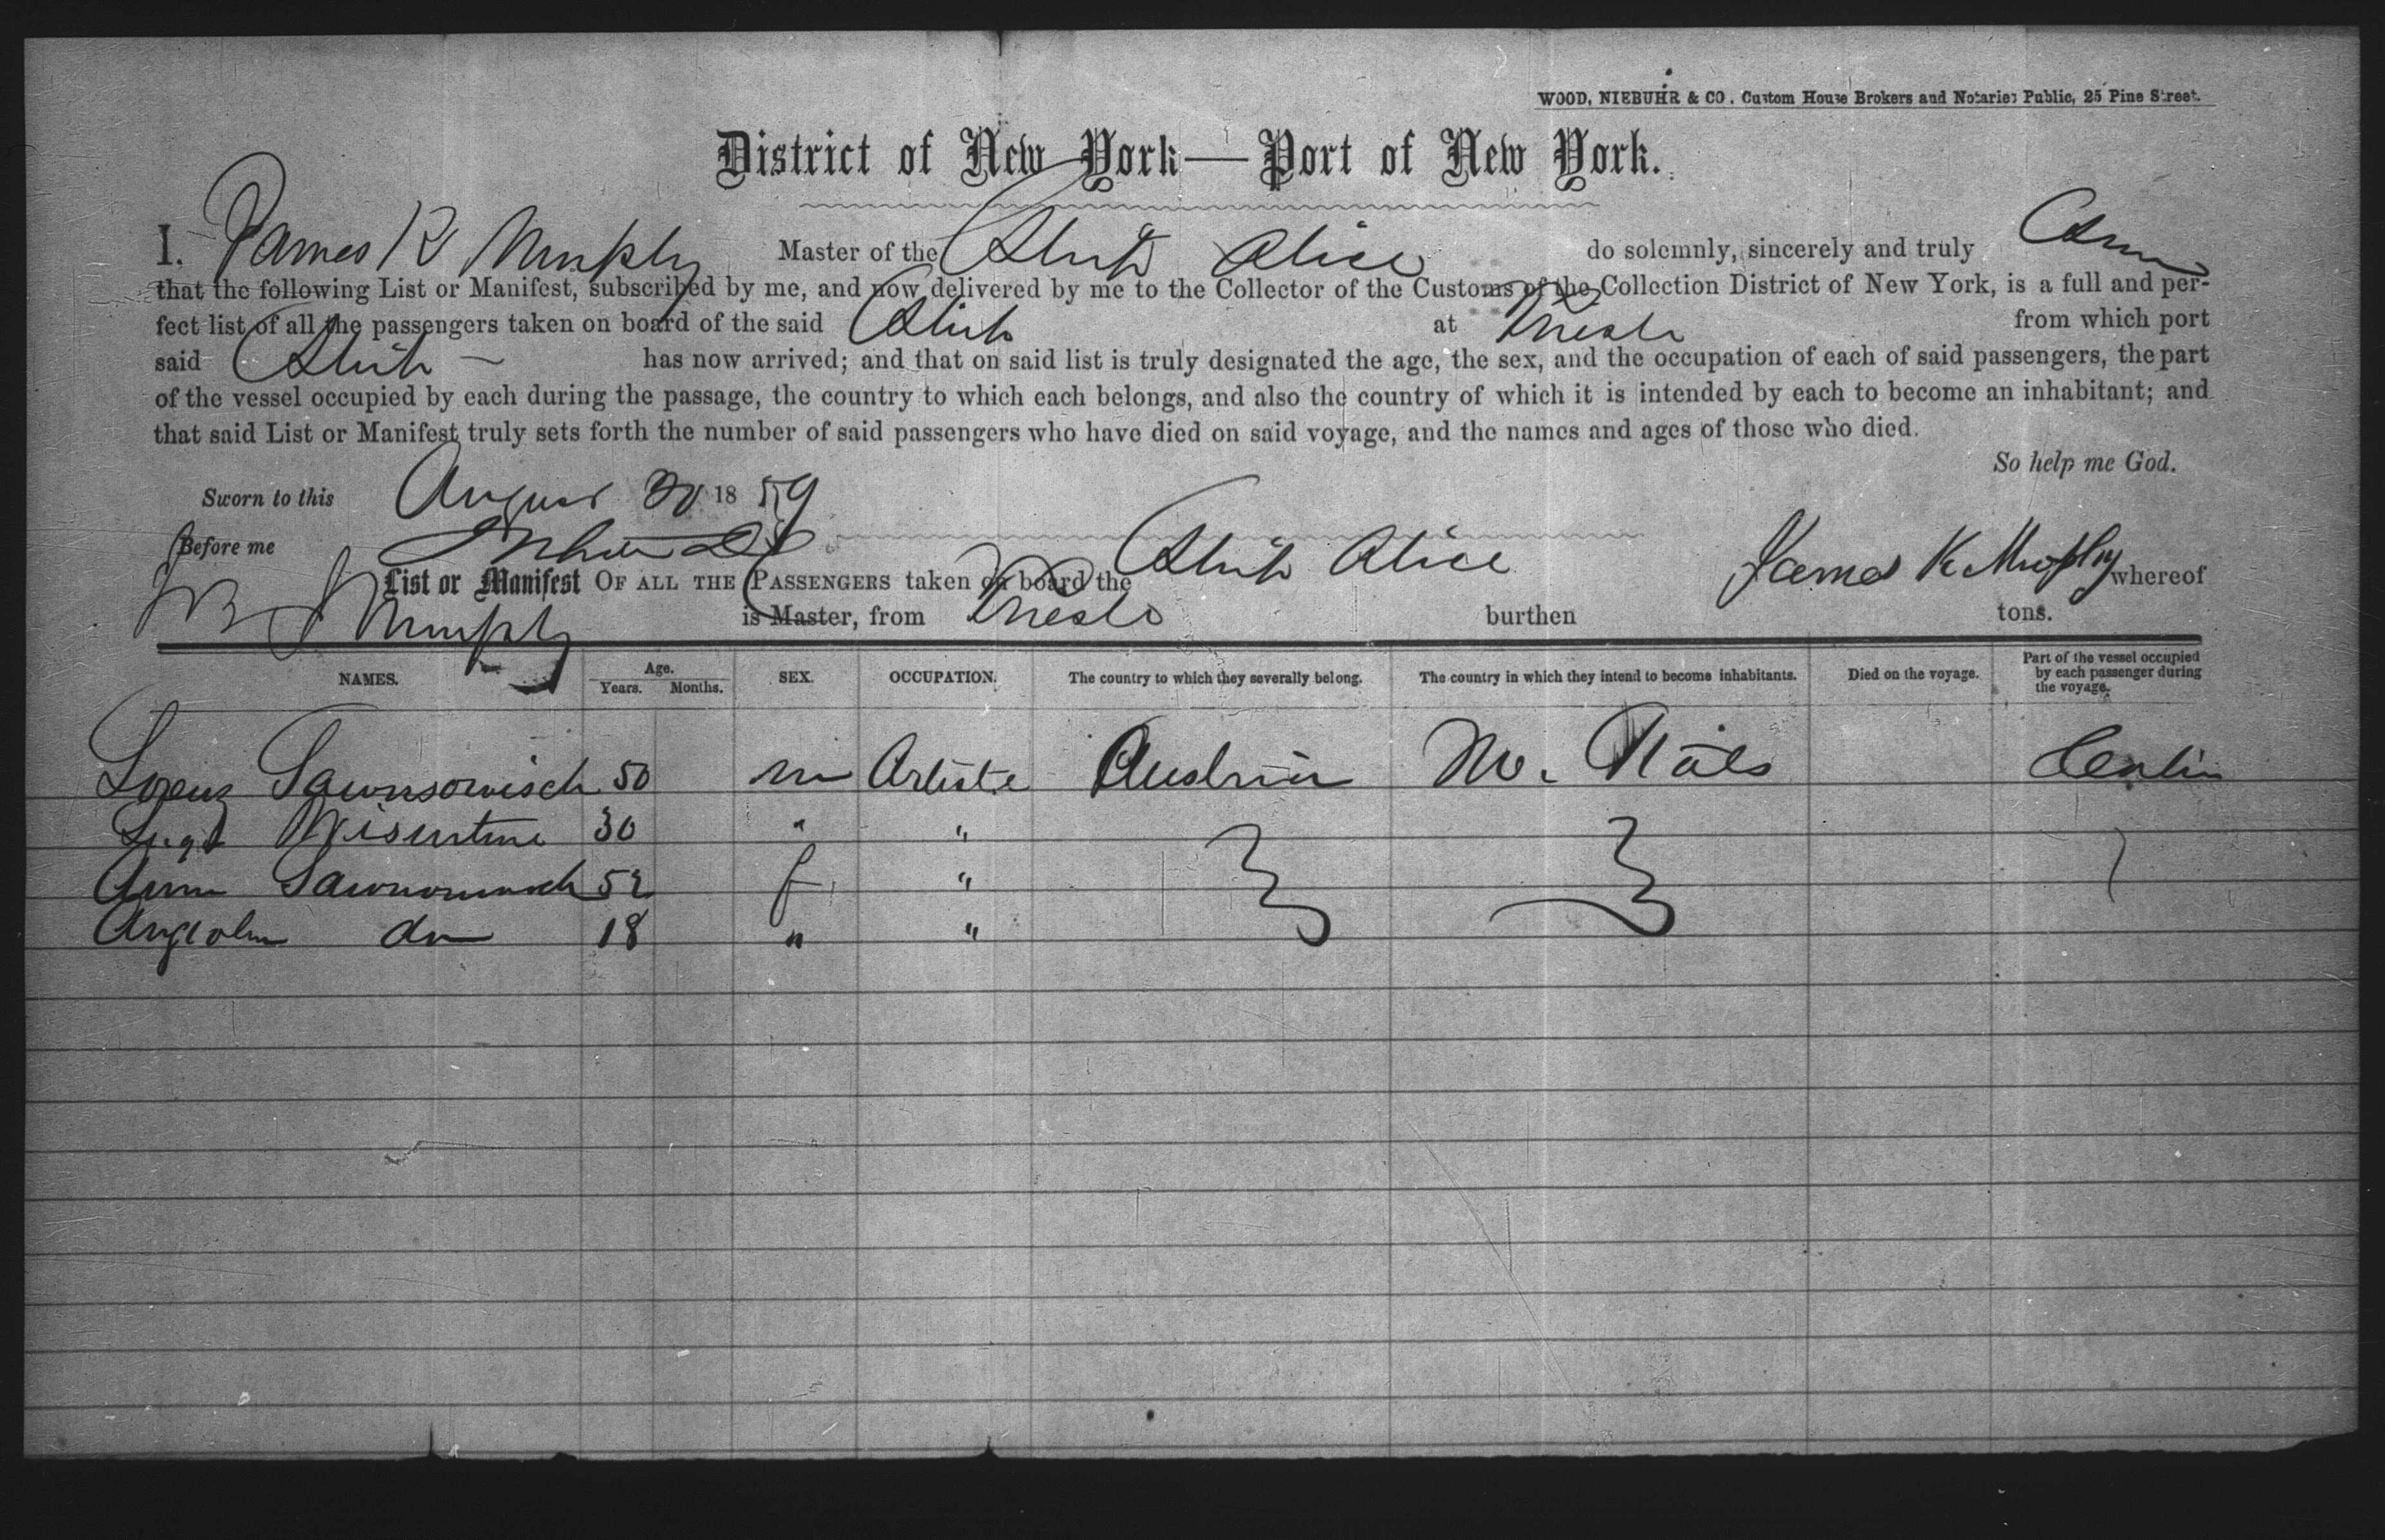 WOOD, NIEBUHR & CO. Custom House Brokers and Notaries Public, 25 Pine Street.
District of New York—Port of New York.
I. James K Murphy Master of the Ship Alice do solemnly, sincerely and truly
that the following List or Manifest, subscribed by me, and now delivered by me to the Collector of the Customs of the Collection District of New York, is a full and per-
fect list of all the passengers taken on board of the said Ship at Trieste from which port
said Ship has now arrived; and that on said list is truly designated the age, the sex, and the occupation of each of said passengers, the part
of the vessel occupied by each during the passage, the country to which each belongs, and also the country of which it is intended by each to become an inhabitant; and
that said List or Manifest truly sets forth the number of said passengers who have died on said voyage, and the names and ages of those who died.
So help me God.
Sworn to this August 1859
Before me
List or Manifest OF ALL THE PASSENGERS taken on board the Ship Alice James K Murphy whereof
is Master, from Trieste burthen tons.
J Murphy
NAMES. Age. Years. Months. SEX. OCCUPATION. The country to which they severally belong. The country in which they intend to become inhabitants. Died on the voyage. Part of the vessel occupied by each passenger during the voyage.
Lorenz 50 m Artiste Austria U. States Cabin
30 " "
Ann 52 f "
do 18 " "